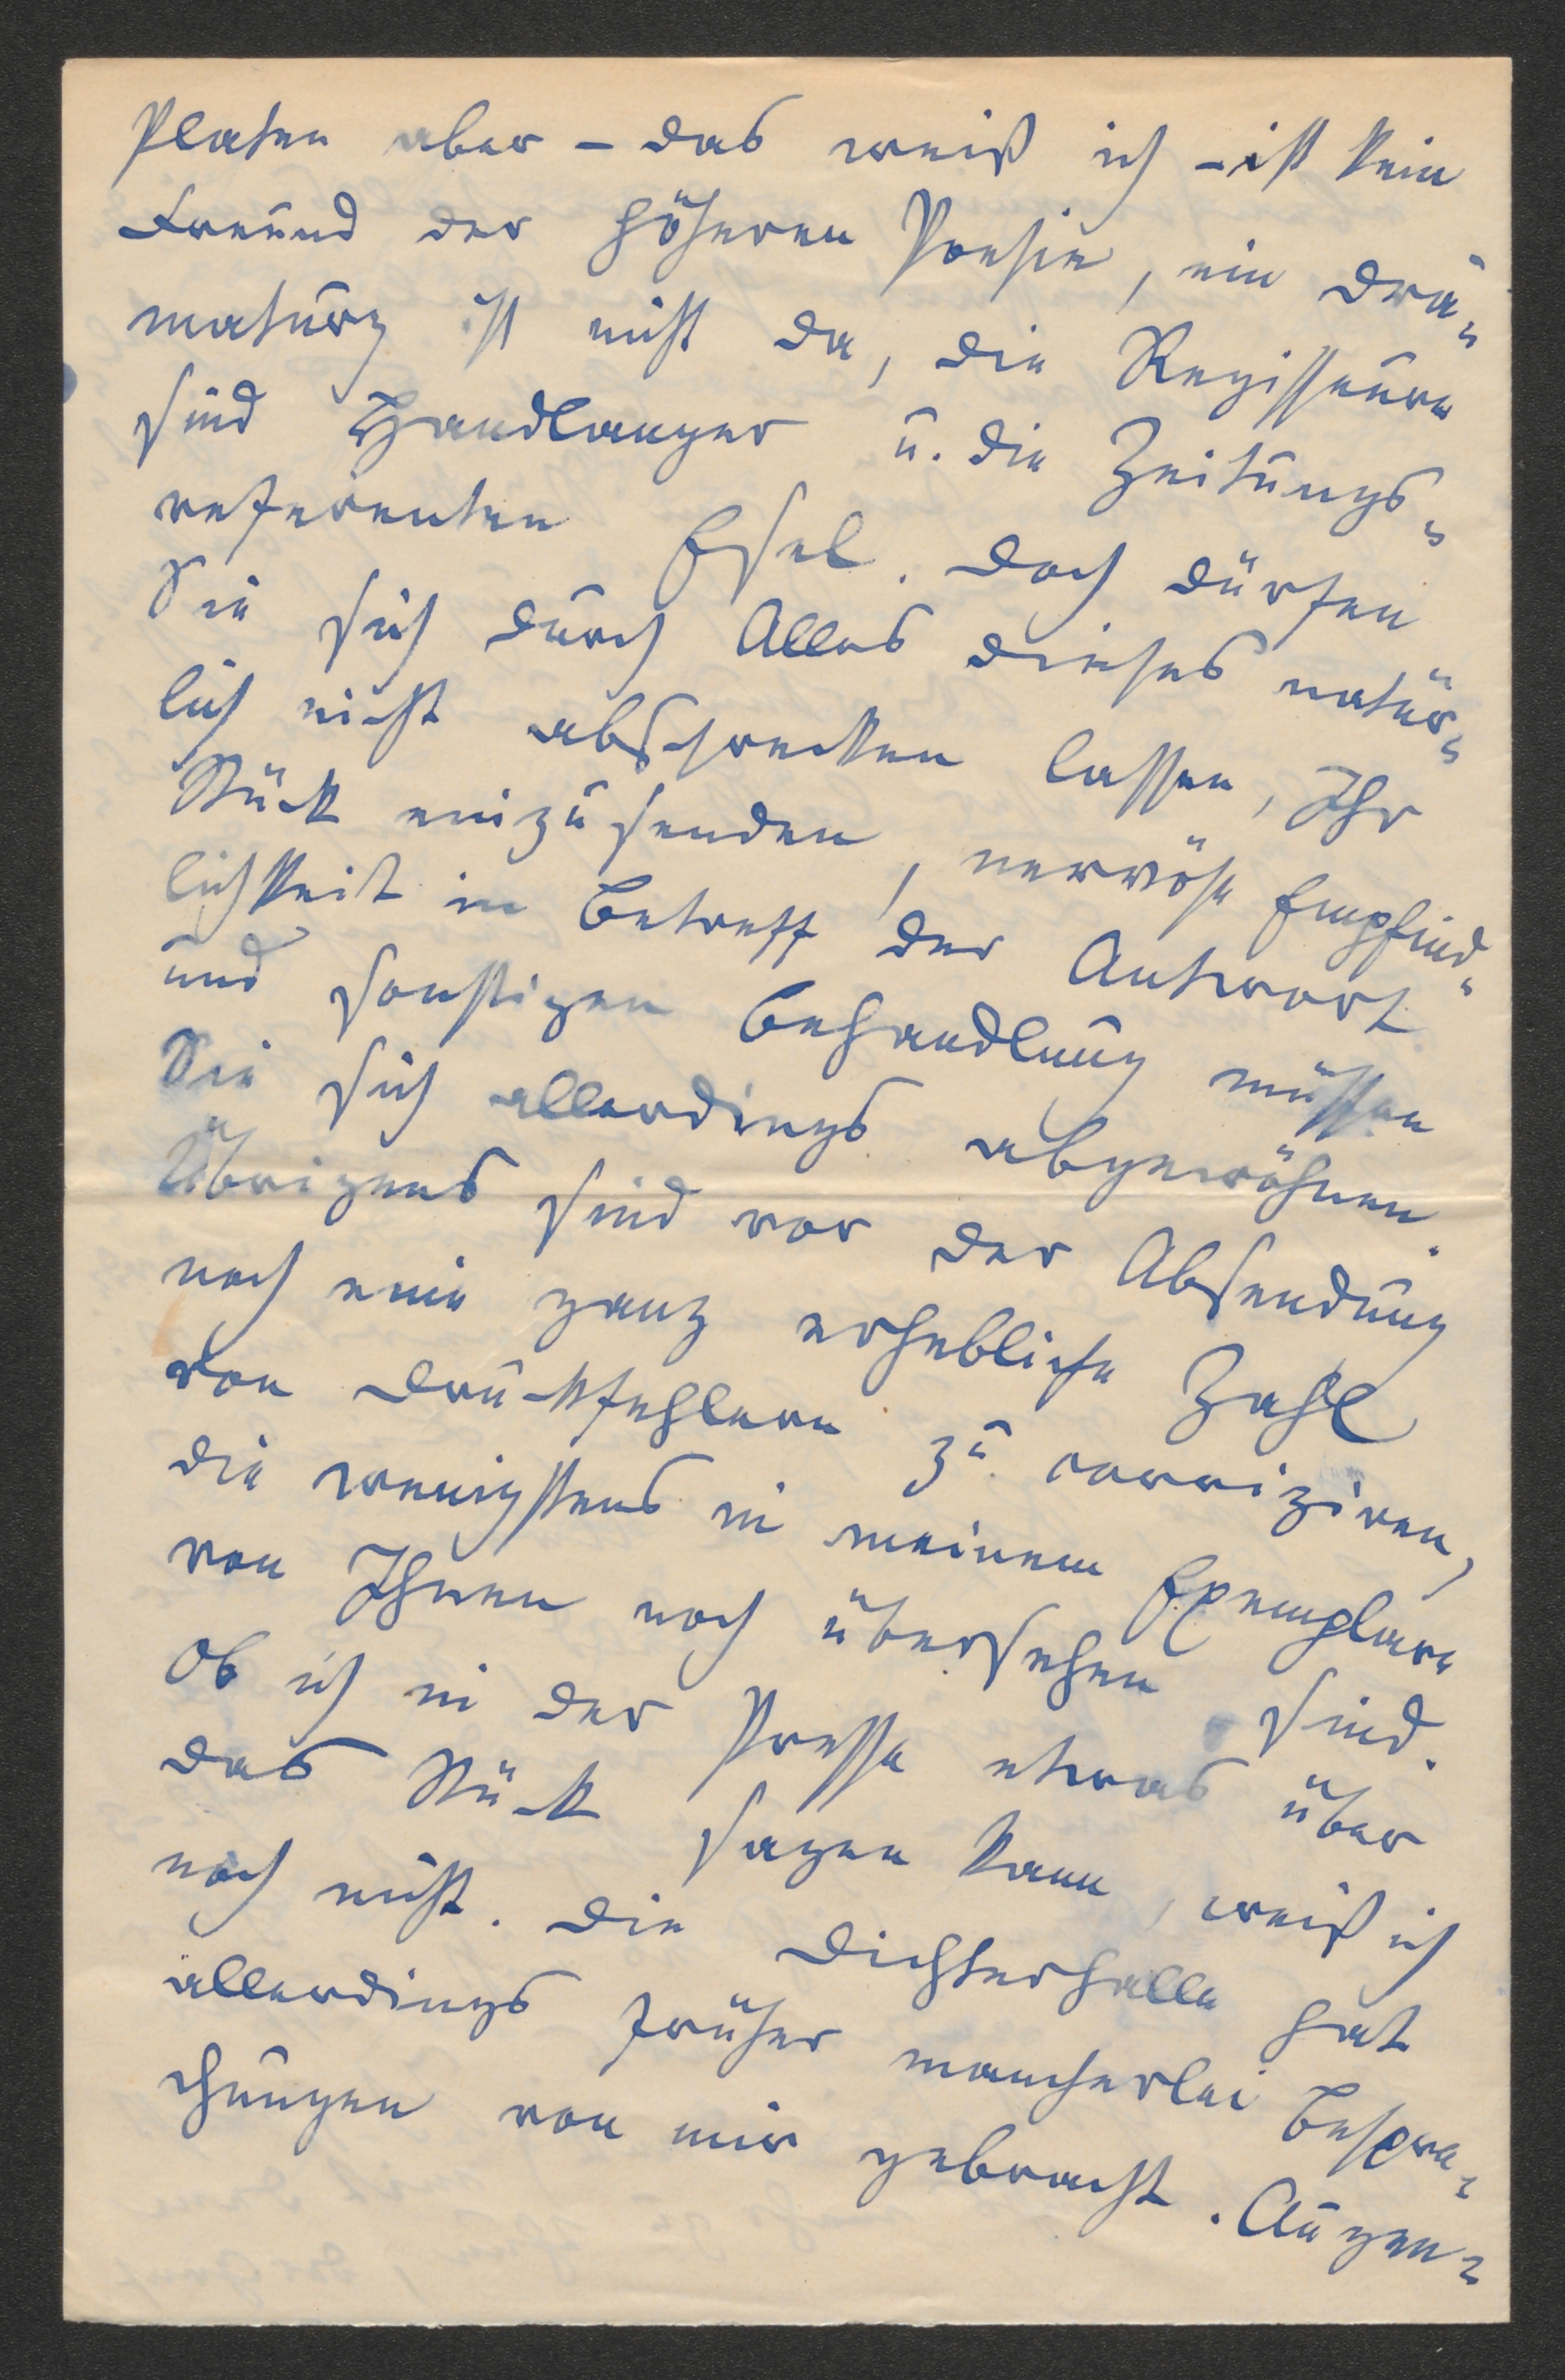 Platen aber – das weiß ich – ist kein
Freund der höheren Poesie, ein Dra-
maturg ist nicht da, die Regisseure
sind Handlanger u. die Zeitungs-
referenten Esel. Doch dürfen
Sie sich durch Alles dieses natür-
lich nicht abschrecken lassen, Ihr
Stück einzusenden, nervöse Empfind-
lichkeit in Betreff der Antwort
und sonstigen Behandlung müssen
Sie sich allerdings abgewöhnen.
Übrigens sind vor der Absendung
noch eine ganz erhebliche Zahl
von Druckfehlern zu corrigiren,
die wenigstens in meinem Exemplare
von Ihnen noch übersehen sind.
Ob ich in der Presse etwas über
das Stück sagen kann, weiß ich
noch nicht. Die Dichterhalle hat
allerdings früher mancherlei Bespre-
chungen von mir gebracht. Augen-